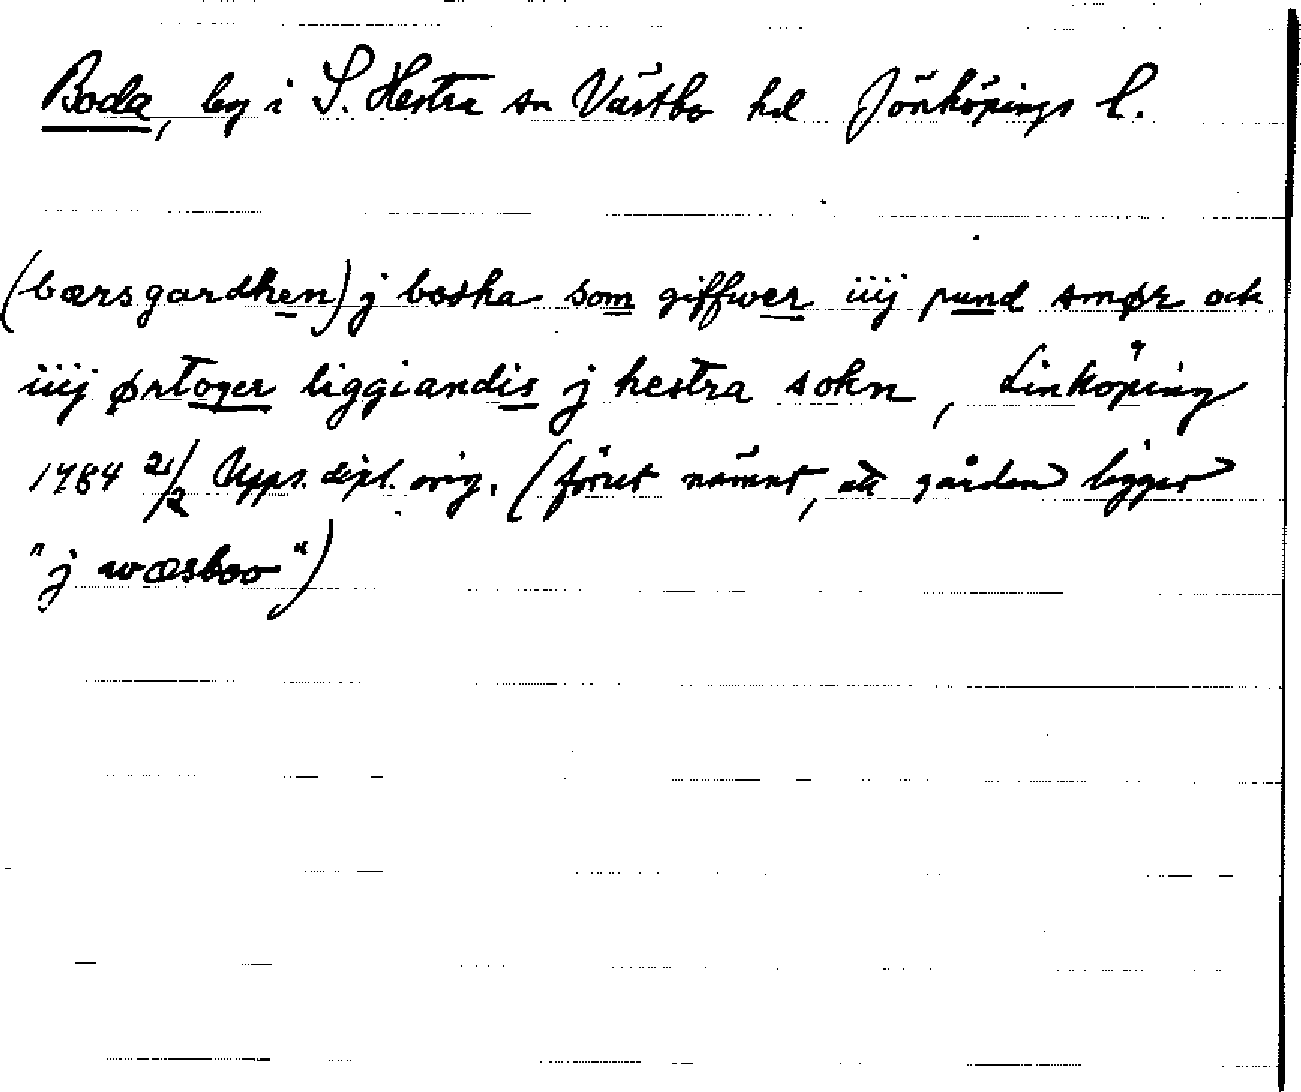 Boda, by i S. Hestra sn Västbo hd Jönköpings l.
(bærsgardhen) j bodha som giffwer iiij pund smør och
iiij ørtoger liggiandis j hestra sokn, Linköping
1484 21/2 Upps. dipl. orig. (förut nämnt, att gården ligger
"j wæsboo")